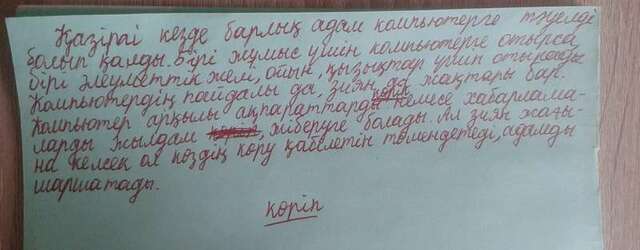 Қазіргі кезде барлық адам компьютерге тәуелді
болып қалды. Бірі жұмыс үшін компьютерге отырса,
бірі әлеуметтік желі, ойын, қызықтар үшін отырады.
Компьютердің пайдалы да, зиян да жақтары бар.
Компьютер арқылы ақпараттарды көріп немесе хабарлама-
ларды жылдам жіберуге болады. Ал зиян жағы-
на келсек ол көздің көру қабілетін төмендетеді, адамды
шаршатады.
көріп